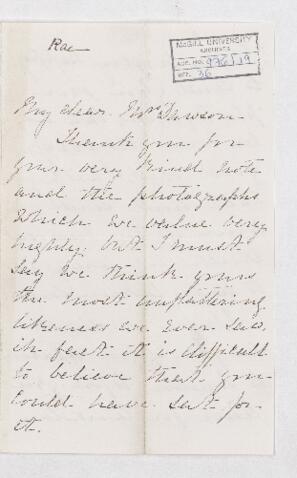 Rae
McGILL UNIVERSITY
ARCHIVES
ACC. NO. 976/19
REF. 36
My dear Mrs Dawson
Thank you for
your very kind note
and the photographs
which we value very
highly, but I must
say we think yours
the most unflattering
likeness we ever saw,
in fact it is difficult
to believe that you
could have sat for
it.